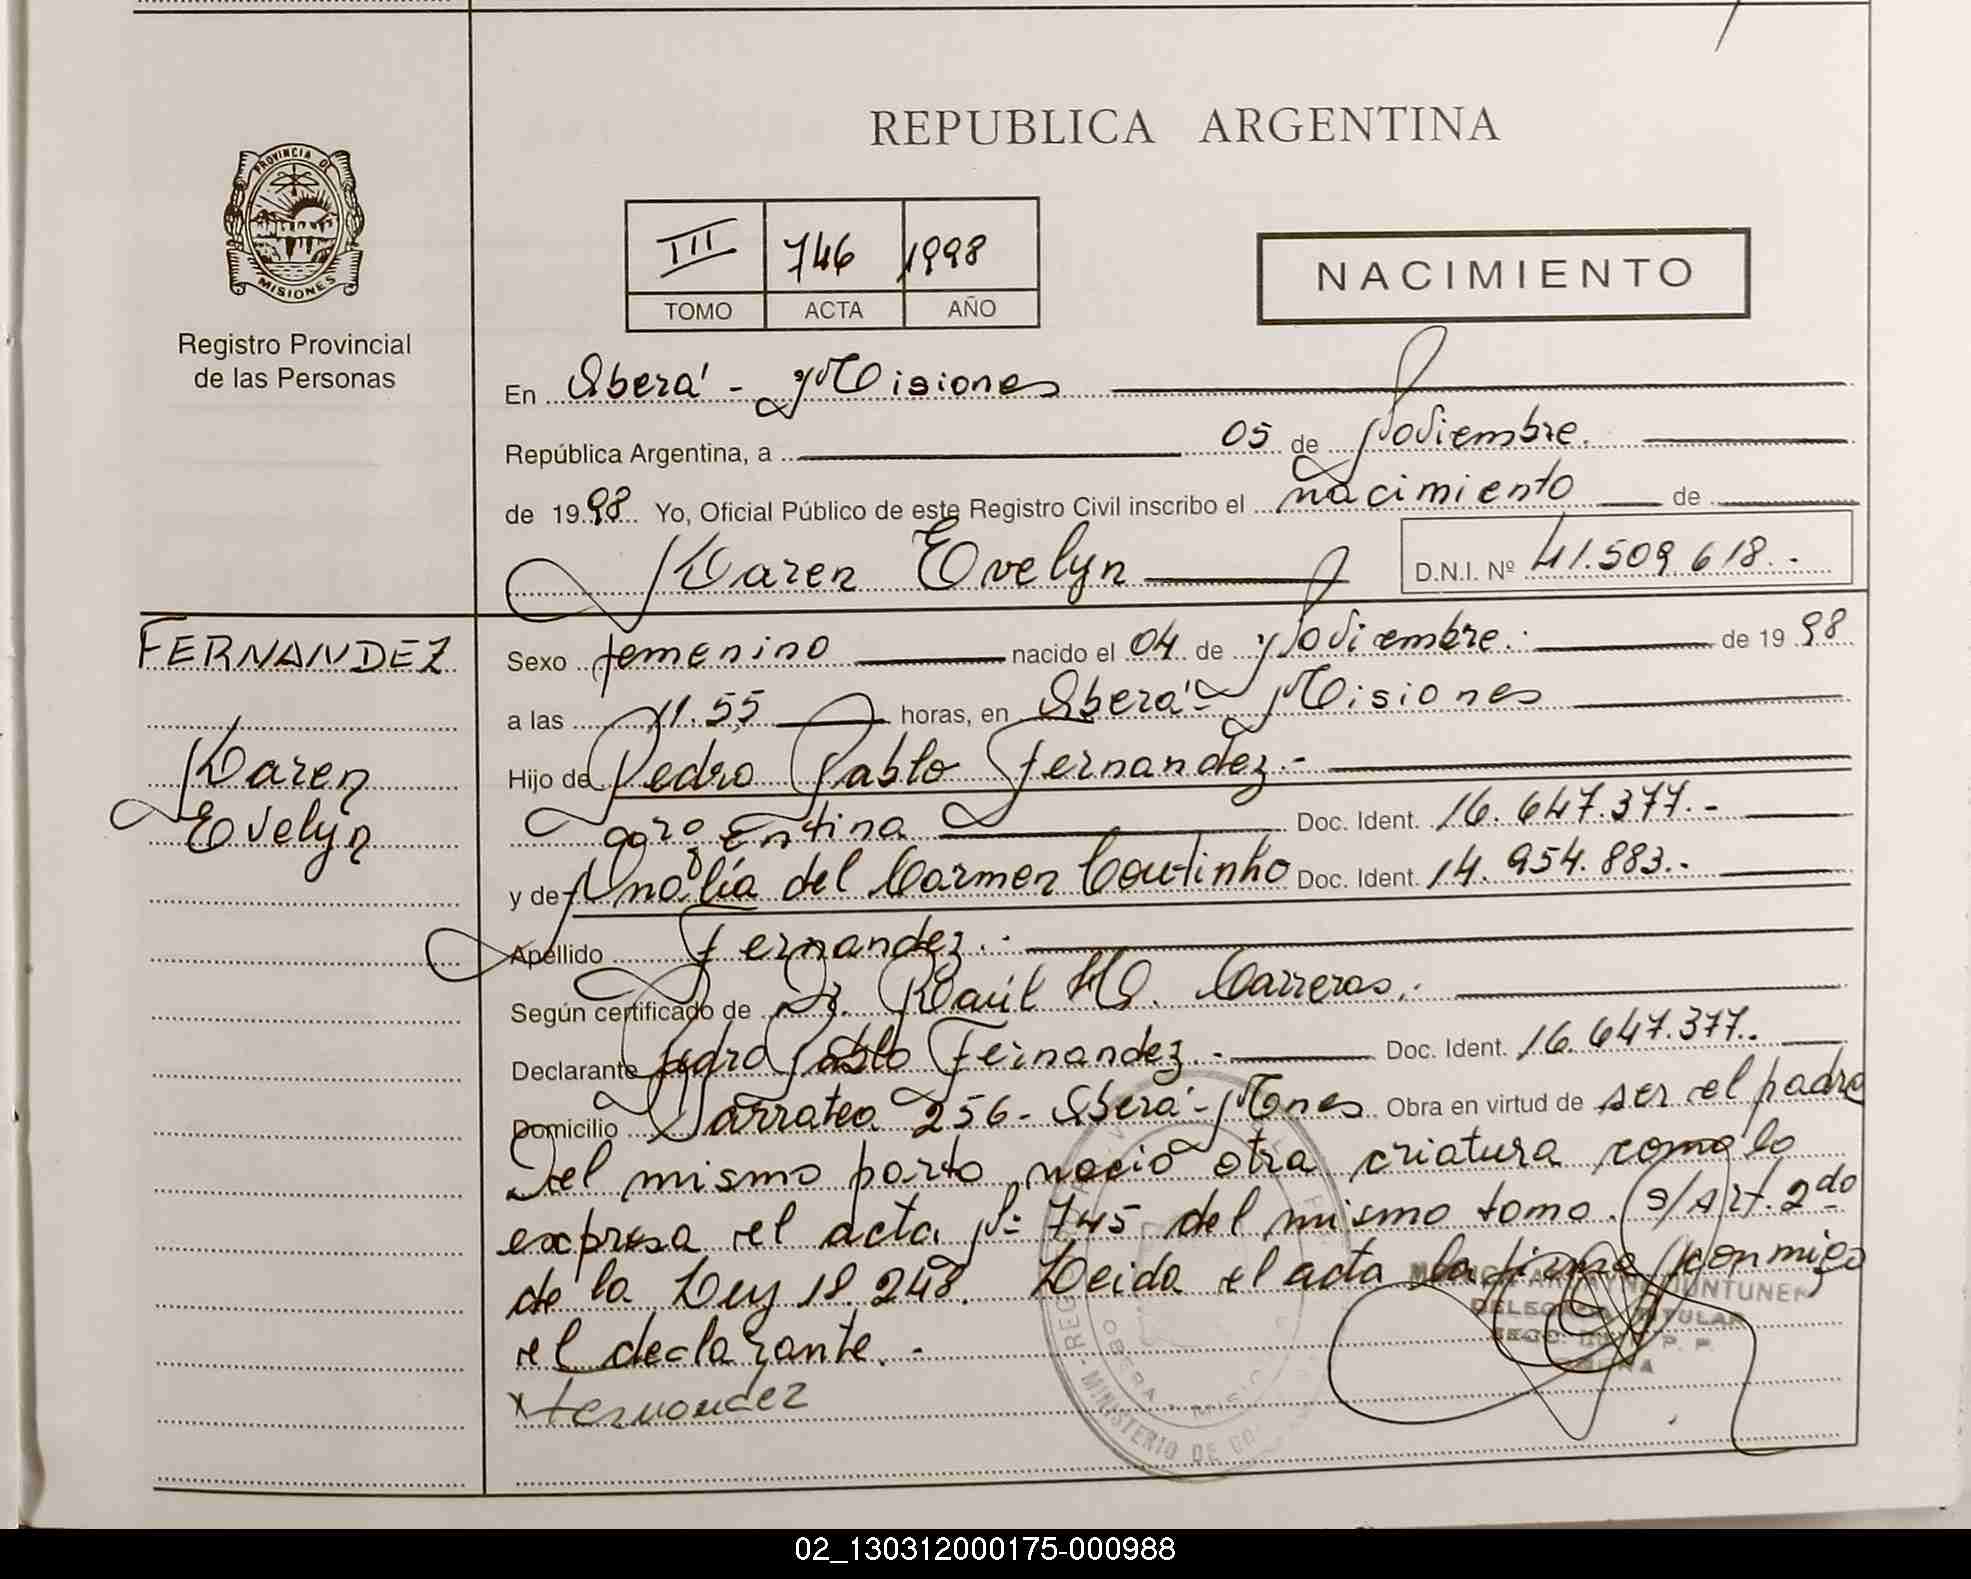 REPUBLICA ARGENTINA
PROVINCIA DE
MISIONES
Registro Provincial
de las Personas
III 746 1998
TOMO ACTA AÑO
NACIMIENTO
En Oberá - Misiones
República Argentina, a 05 de Noviembre.
de 1998 Yo, Oficial Público de este Registro Civil inscribo el nacimiento de
Karen Evelyn D.N.I. Nº 41.509.618.-
FERNANDEZ
Karen
Evelyn
Sexo femenino nacido el 04 de Noviembre.- de 1998
a las 11.55 horas, en Oberá - Misiones
Hijo de Pedro Pablo Fernandez.-
argentina Doc. Ident. 16.647.377.-
y de Analía del Carmen Coutinho Doc. Ident. 14.954.883.-
Apellido Fernandez.-
Según certificado de Dr. Raúl H. Carreras.-
Declarante Pedro Pablo Fernandez.- Doc. Ident. 16.647.377.-
Domicilio 256 - Oberá - Mnes Obra en virtud de ser el padre
Del mismo parto nació otra criatura como lo
expresa el acta Nº 745 del mismo tomo. S/Art. 2do
de la Ley 18.248. Leida el acta la firma conmigo
el declarante.-
x Fernandez
DELEGADA TITULAR
MINISTERIO DE GO
02_130312000175-000988